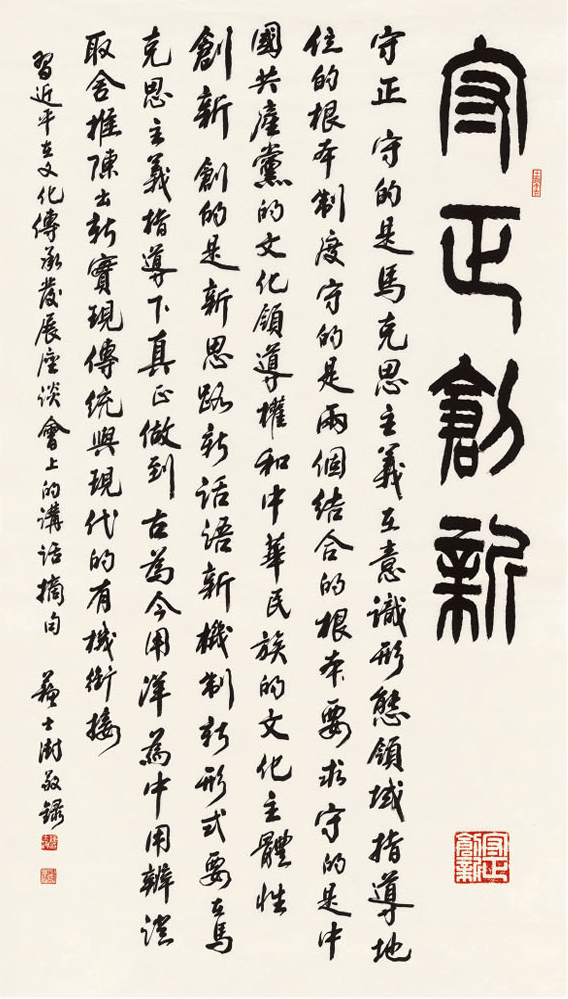 守正創新
守正 守的是馬克思主義在意識形態領域指導地
位的根本制度守的是兩個結合的根本要求守的是中
國共產黨的文化領導權和中華民族的文化主體性
創新 創的是新思路新話語新機制新形式要在馬
克思主義指導下真正做到古為今用洋為中用辯證
取舍推陳出新實現傳統與現代的有機銜接
習近平在文化傳承發展座談會上的講話摘句 蘇士澍敬錄
守正創新